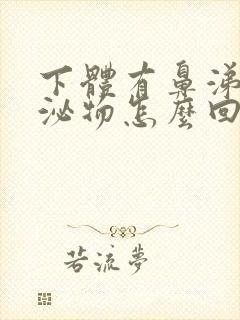 下體有鼻涕
泌物怎麼回
若流夢